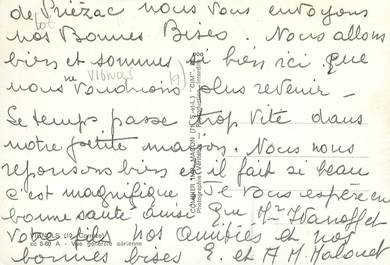 de Priézac nous vous envoyons
nos Bonnes Bises. Nous allons
bien et sommes si bien ici que
nous ne voudrions plus revenir -
Le temps passe trop vite dans
notre petite maison. Nous nous
reposons bien et il fait si beau
c'est magnifique Je vous espère en
bonne santé ainsi que Mr
vous tous nos amitiés et nos
bonnes bises E. et A M
COMBIER IMP. MACON (71. S.-et-L.) "CIM"
Vue générale aérienne